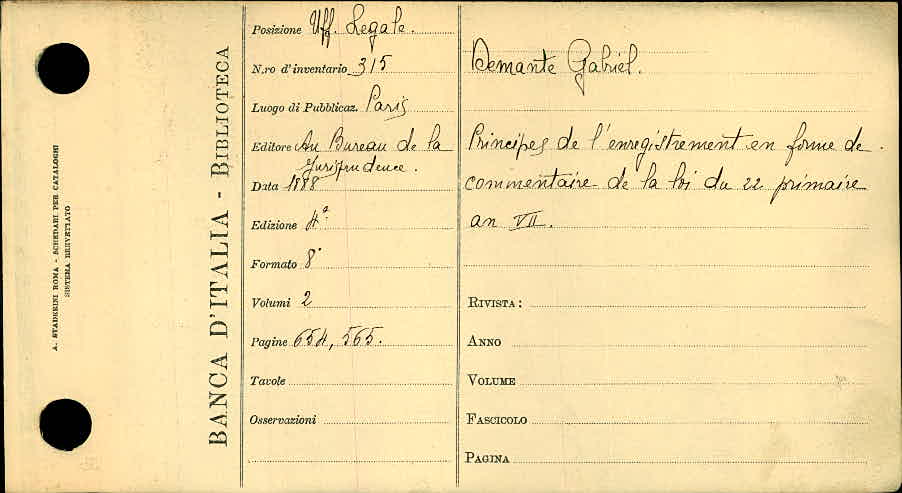 A. STADERINI ROMA - SCHEDARI PER CATALOGHI
SISTEMA BREVETTATO
BANCA D'ITALIA - BIBLIOTECA
Posizione Uff. Legale.
N.ro d'inventario 315
Luogo di Pubblicaz. Paris
Editore Au Bureau de la
Jurisprudence.
Data 1888
Edizione 4ª
Formato 8°
Volumi 2
Pagine 654, 565.
Tavole
Osservazioni
Demante Gabriel.
Principes de l'enregistrement en forme de
commentaire de la loi du 22 primaire
an VII.
RIVISTA:
ANNO
VOLUME
FASCICOLO
PAGINA